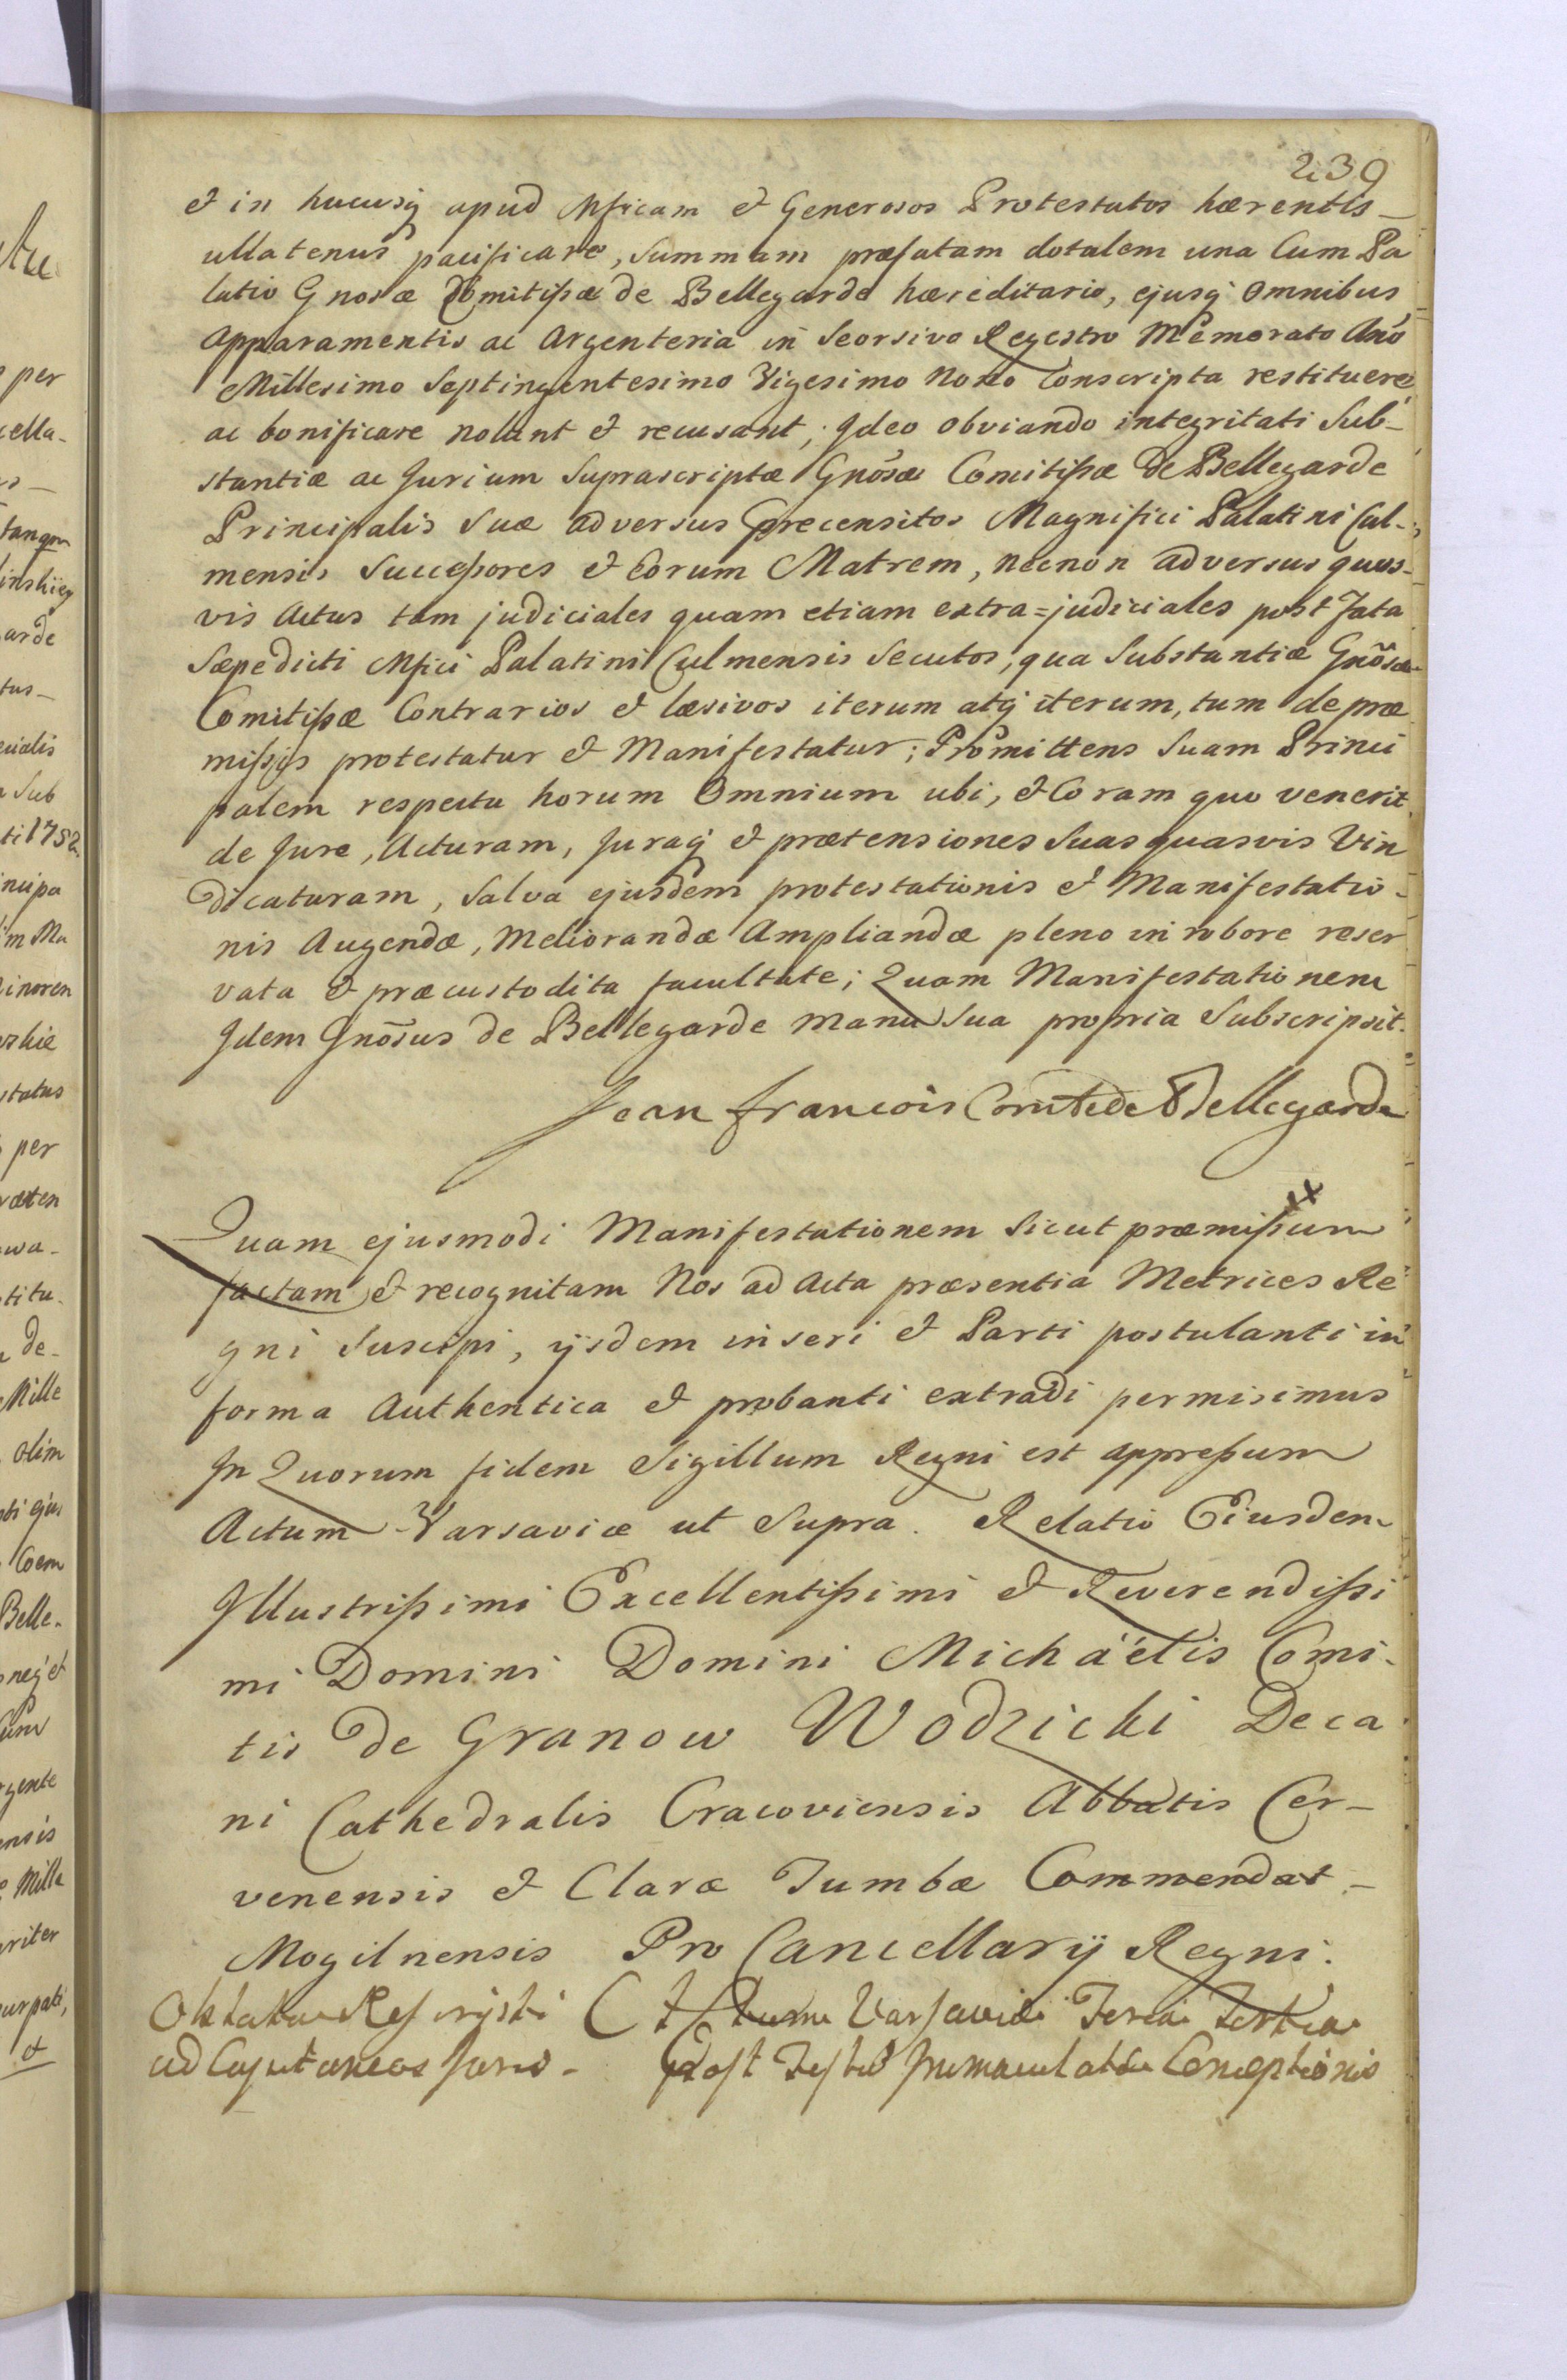 239
et in hucusq apud Mficam et Generosos Protestatos hærentis
ullatenus pacificare, Summam præfatam dotalem una Cum Pa
latio Gnosæ Comitissæ de Bellegarde hæreditario, ejusq Omnibus
Apparamentis ac Argenteria in Seorsivo Regestro Memorato Anō
Millesimo Septingentesimo Vigesimo Nono Conscripta restituere
ac bonificare nolunt et recusant; Ideo obviando integritati Sub-
stantiæ ac Jurium Suprascriptæ Gnōsæ Comitissæ de Bellegarde
Principalis Suæ adversus præcensitos Magnifici Palatini Cul-
mensis Successores et Eorum Matrem, necnon adversus quos-
vis Actus tam judiciales quam etiam extra=judiciales post Fata
Sæpedicti Mfici Palatini Culmensis Secutos, qua Substantiæ Gnōsæ
Comitissæ Contrarios et læsivos iterum atq iterum, tum de præ
missis protestatur et Manifestatur; Promittens Suam Princi
palem respectu horum Omnium ubi, et Coram quo venerit
de Jure, Acturam, Juraq et prætensiones Suas quasvis Vin
dicaturam, Salva ejusdem protestationis et Manifestatio-
nis Augendæ, Meliorandæ Ampliandæ pleno in robore reser
vata et præcustodita facultate; Quam Manifestationem
Idem Gnōsus de Bellegarde manu Sua propria Subscripsit.
Jean francois Comte de Bellegarde
Quam ejusmodi Manifestationem Sicut præmissum
factam et recognitam Nos ad Acta præsentia Metrices Re
gni Suscipi, ijsdem inseri et Parti postulanti in
forma Authentica et probanti extradi permisimus
In Quorum fidem Sigillum Regni est appressum
Actum Varsaviæ ut Supra. Relatio Eiusdem
Illustrissimi Excellentissimi et Reverendissi
mi Domini Domini Michaelis Comi-
tis de Granow Wodzicki Deca
ni Cathedralis Cracoviensis Abbatis Cer-
venensis et Claræ Tumbæ Commendat-
Mogilnensis Pro Cancellarij Regni.
Oblata Rescripti Actum Varsaviæ Feria Tertia
ad Capitaneos post Festum Immaculatæ Conceptionis